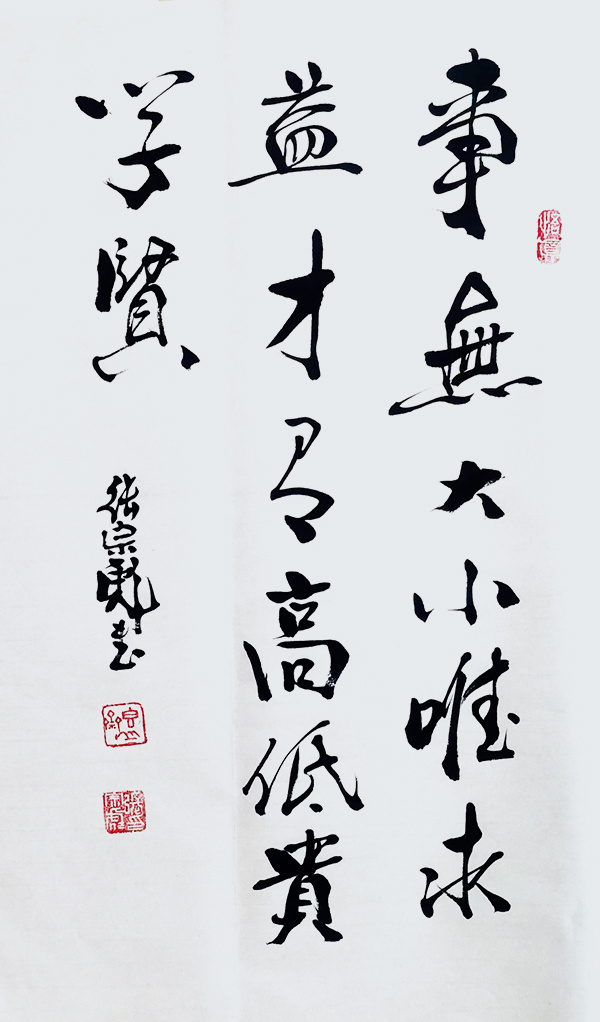 事無大小唯求
益才有高低貴
学賢
張宗書